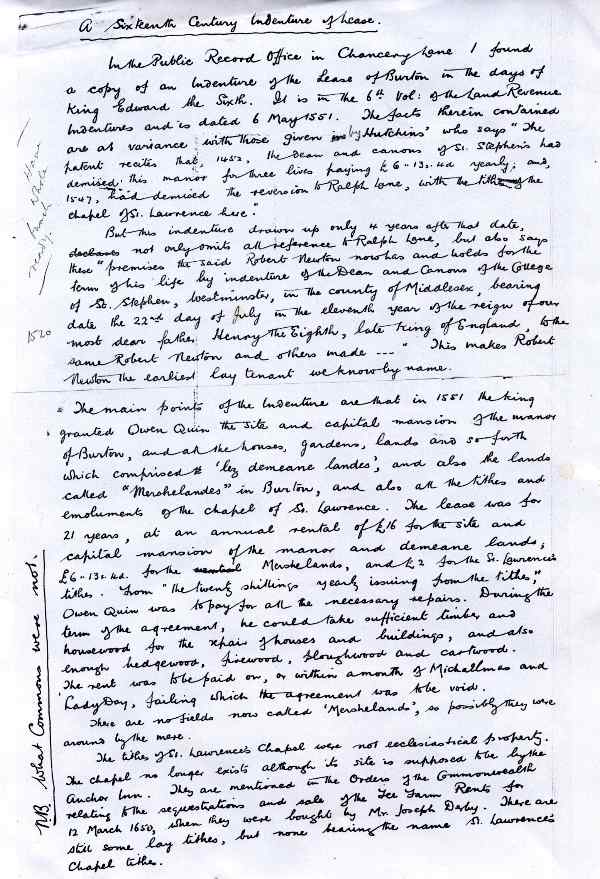 A Sixteenth Century Indenture of Lease.
In the Public Record Office in Chancery Lane I found
a copy of an Indenture of the Lease of Burton in the days of
King Edward the Sixth. It is in the 6th Vol: of the Land Revenue
Indentures and is dated 6 May 1551. The facts therein contained
are at variance with those given by Hutchins' who says "The
patent recites that, 1452, the Dean and canons of St. Stephen's had
demised this manor for three lives paying £6-13s.4d yearly; and,
1547, had demised the reversion to Ralph Lane, with the tithes of the
chapel of St. Lawrence here."
But this indenture drawn up only 4 years after that date,
not only omits all reference to Ralph Lane, but also says
these "premises the said Robert Newton now has and holds for the
term of his life by indenture of the Dean and Canons of the College
of St. Stephen, Westminster, in the county of Middlesex, bearing
date the 22nd day of July in the eleventh year of the reign of our
most dear father Henry the Eighth, late King of England, to the
same Robert Newton and others made ---" This makes Robert
Newton the earliest lay tenant we know by name.
1520
The main points of the Indenture are that in 1551 the king
granted Owen Quin the site and capital mansion of the manor
of Burton, and all the houses, gardens, lands and so forth
which comprised 'lez demeane landes', and also the lands
called "Mershelandes" in Burton, and also all the tithes and
emoluments of the chapel of St. Lawrence. The lease was for
21 years, at an annual rental of £16 for the site and
capital mansion of the manor and demeane lands,
£6-13s.4d. for the Mershelands, and £2 for the St. Lawrence's
tithes. From "the twenty shillings yearly issuing from the tithes,"
Owen Quin was to pay for all the necessary repairs. During the
term of the agreement, he could take sufficient timber and
housewood for the repair of houses and buildings, and also
enough hedgewood, firewood, ploughwood and cartwood.
The rent was to be paid on, or within a month of Michallmas and
Lady Day, failing which the agreement was to be void.
There are no fields now called 'Mershelands', so possibly they were
around by the mere.
The tithes of St. Lawrence's Chapel were not ecclesiastical property.
The chapel no longer exists although its site is supposed to be by the
Anchor Inn. They are mentioned in the Orders of the Commonwealth
relating to the sequestrations and sale of the Fee Farm Rents for
12 March 1650, when they were bought by Mr. Joseph Derby. There are
still some lay tithes, but none bearing the name St. Lawrence's
Chapel tithes.
NB What Commons were not.